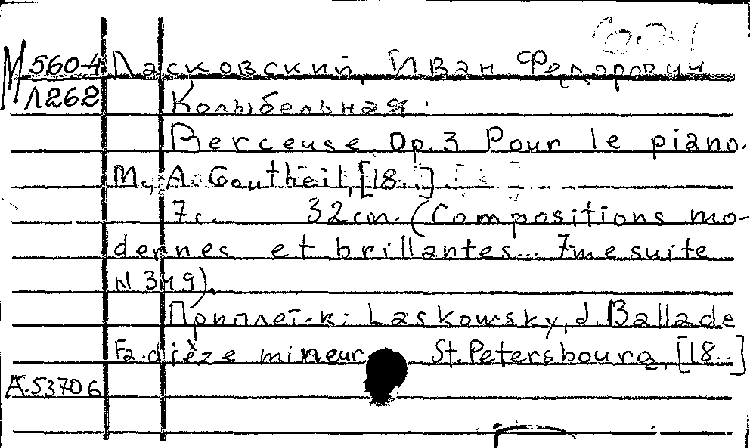 М 560-4 Ласковский, Иван Федорович
Л268 Колыбельная.
Berceuse. Op. 3 Pour le piano.
M., A. Goutheil, [18..]
7 с. 32 cm. (Compositions mo-
dernes et brillantes... 7me suite
N 349).
Приплет. к: Laskowsky, J. Ballade
Fa-dièze mineur St. Petersbourg, [18..]
A.53706